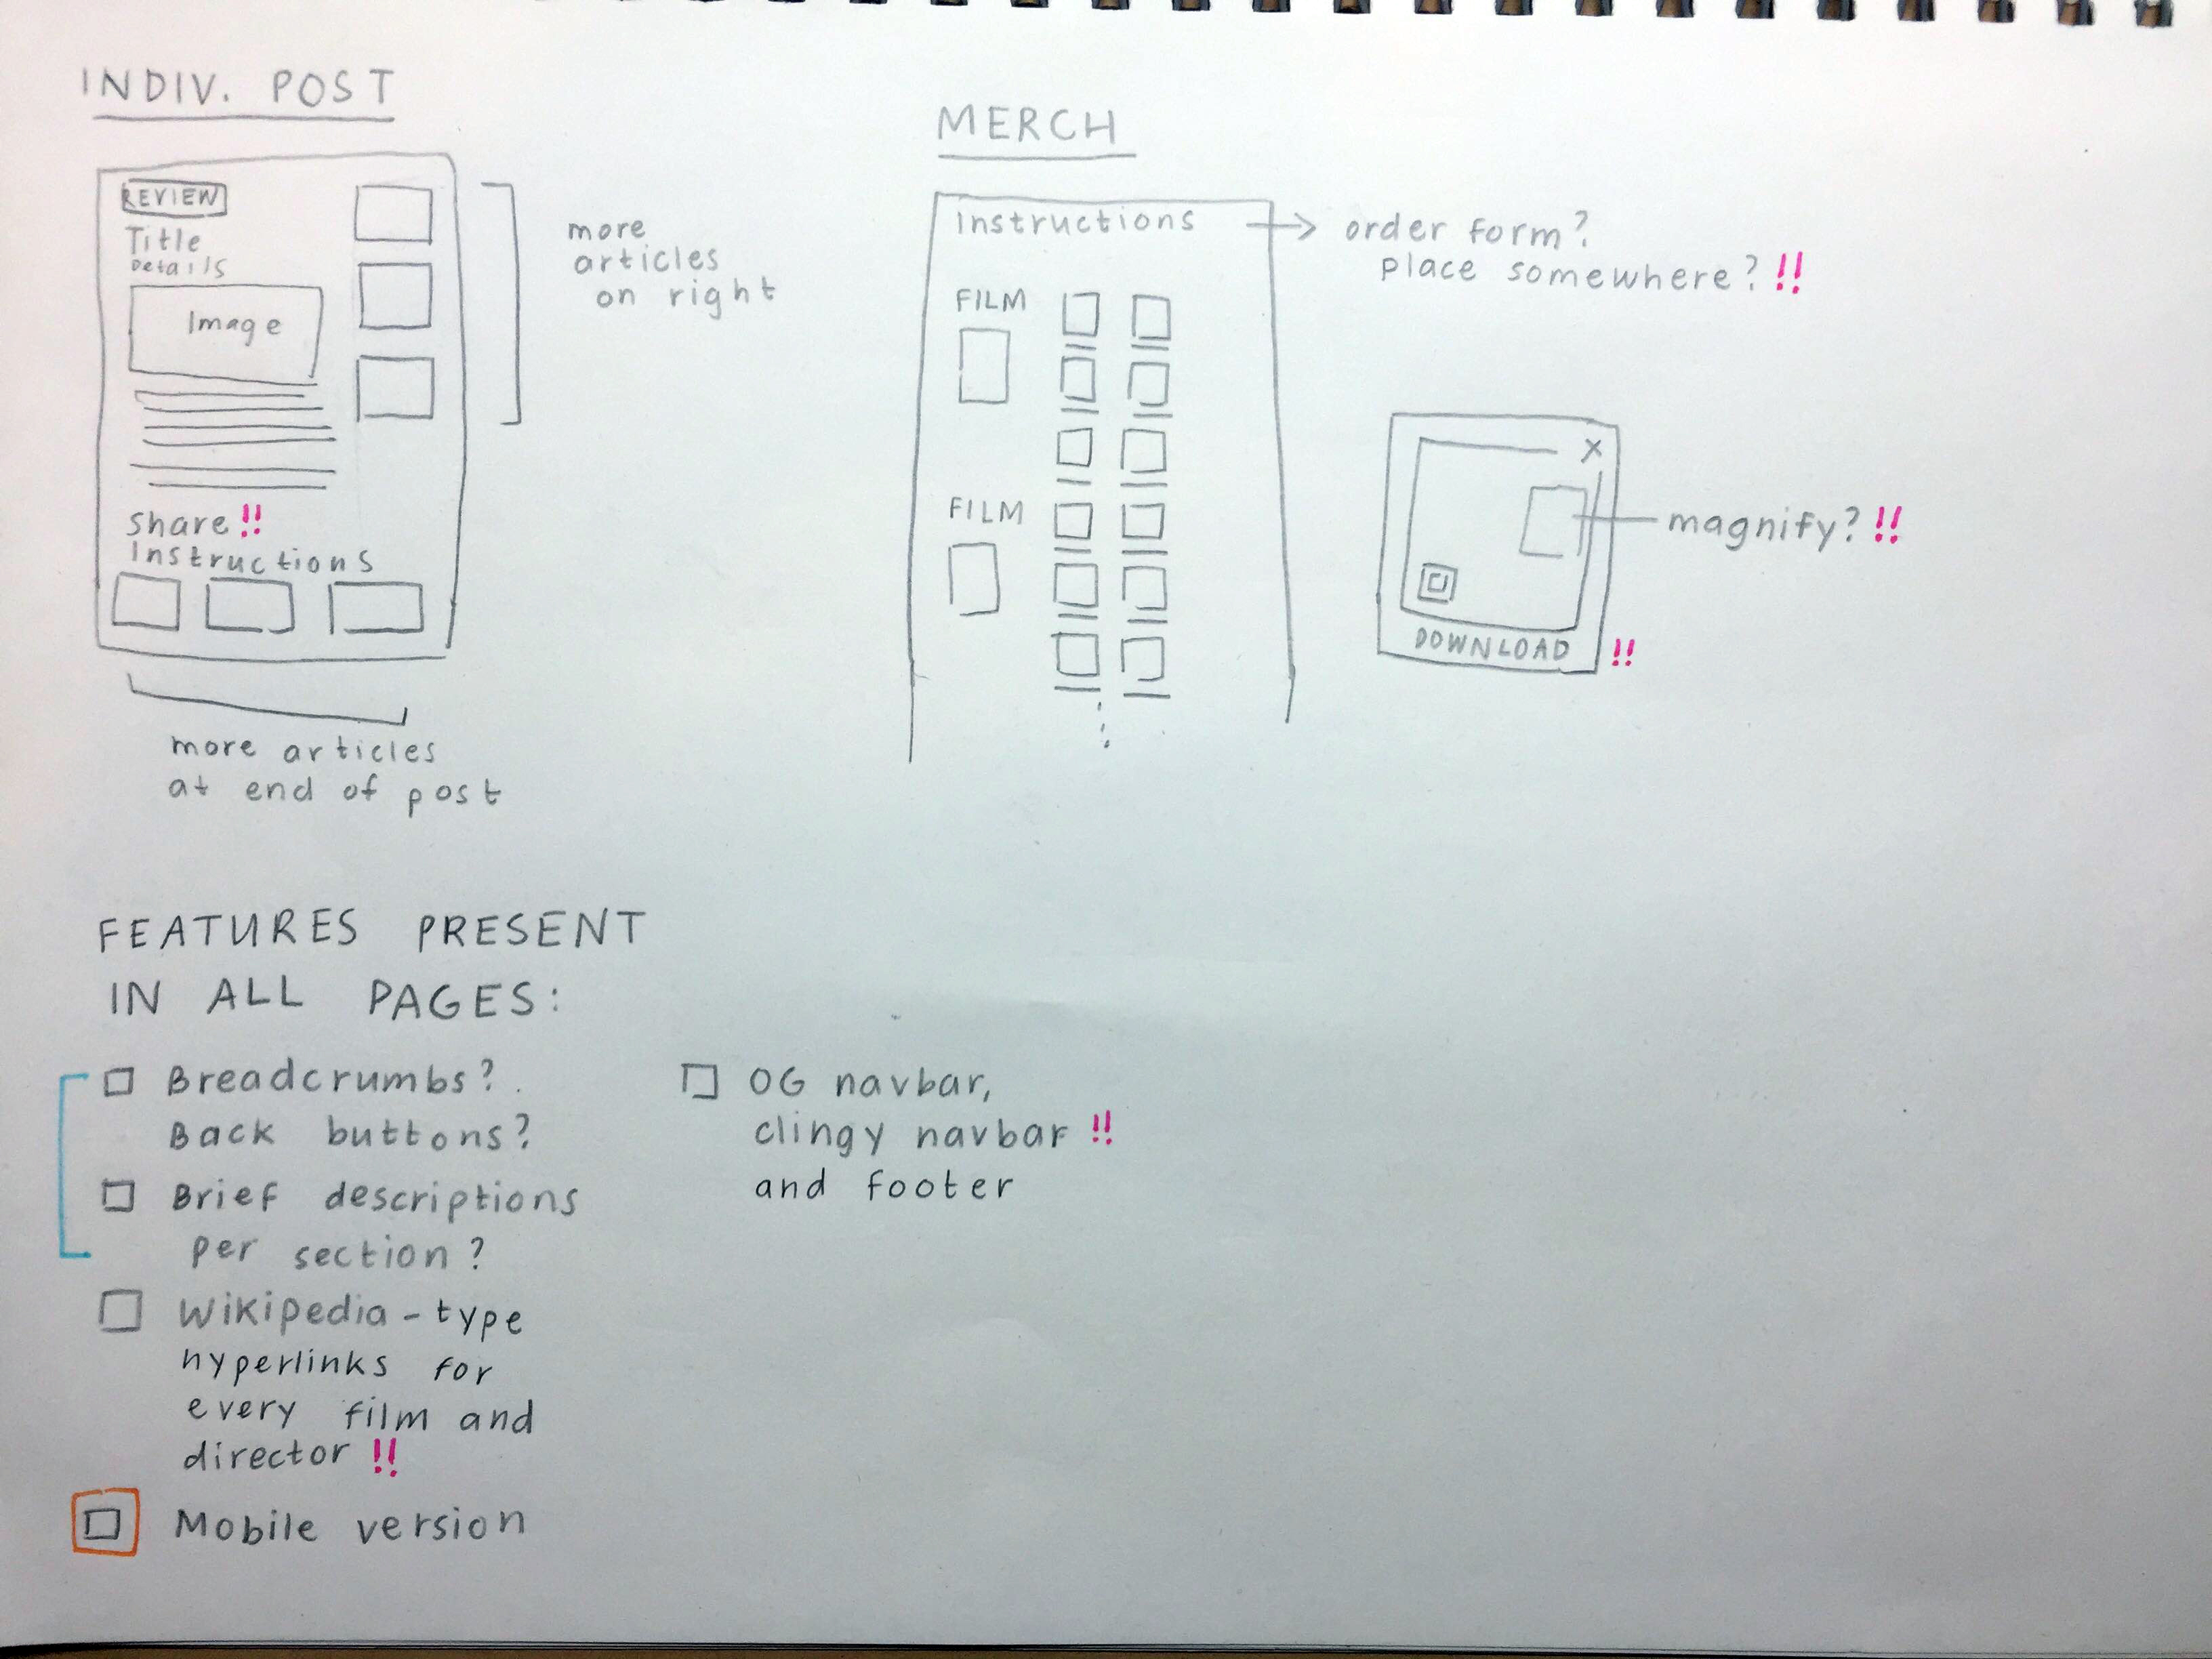 INDIV. POST
REVIEW
Title
Details
Image
Share!!
Instructions
more
articles
on right
more articles
at end of post
MERCH
Instructions
order form?
Place somewhere?!!
FILM
FILM
X
magnify?!!
DOWNLOAD !!
FEATURES PRESENT
IN ALL PAGES:
Breadcrumbs?
Back buttons?
Brief descriptions
per section?
Wikipedia-type
hyperlinks for
every film and
director!!
Mobile version
OG navbar,
clingy navbar!!
and footer